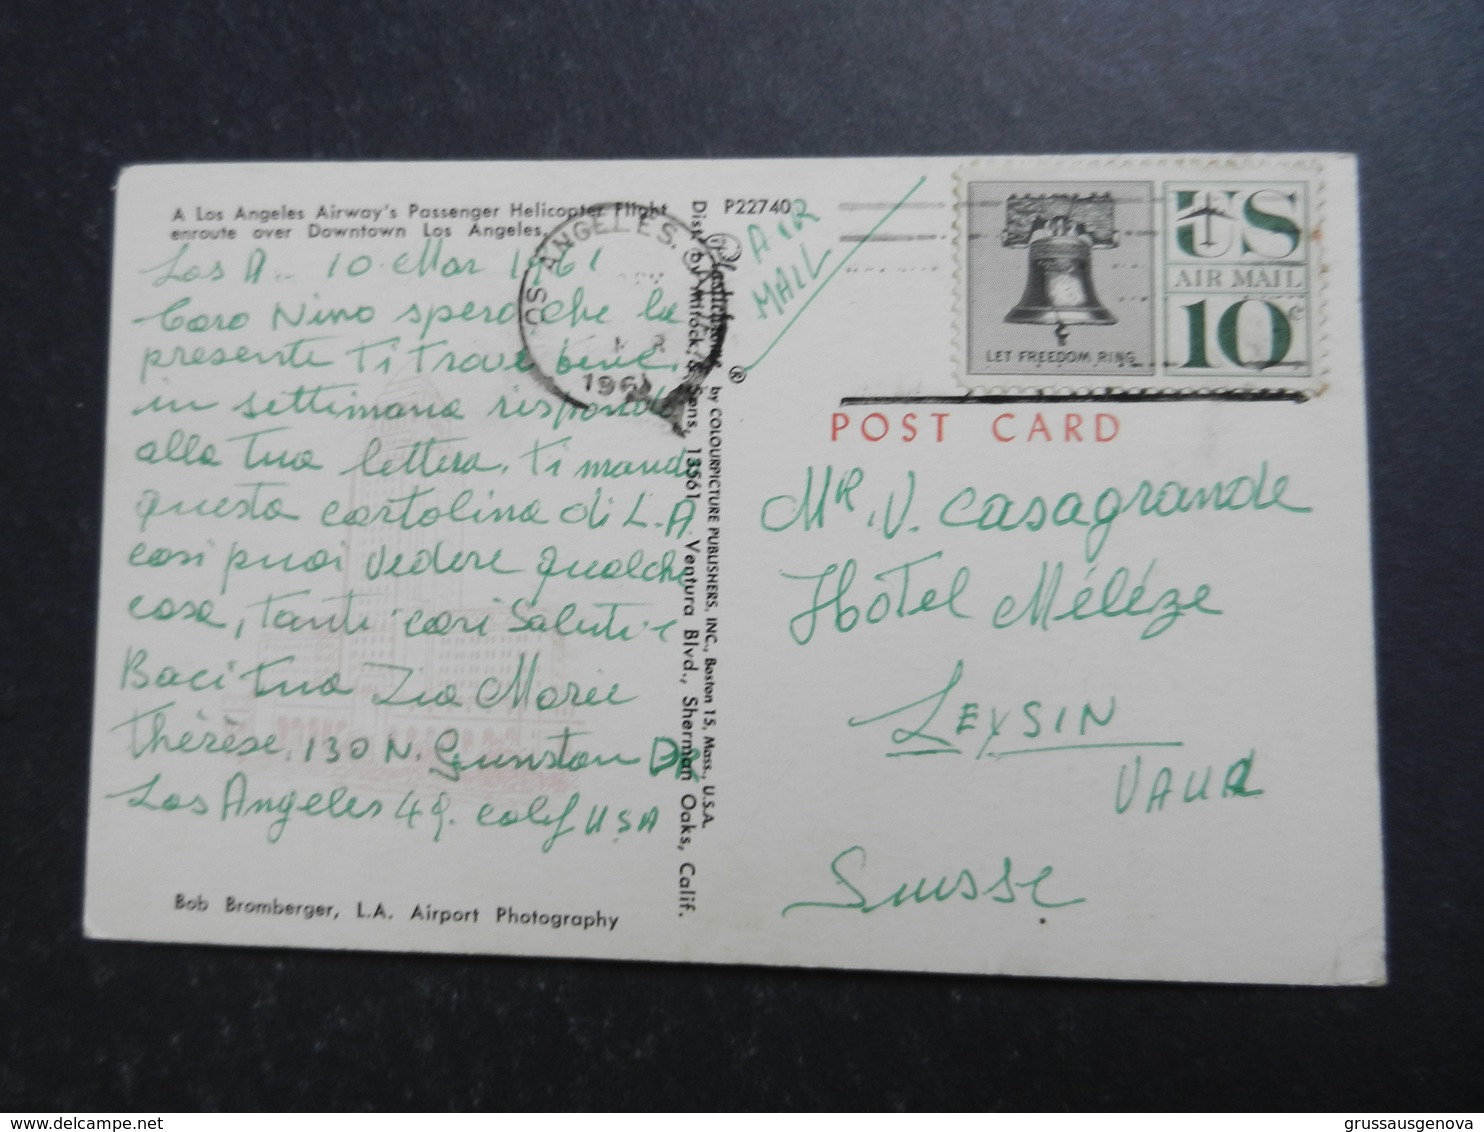 A Los Angeles Airway's Passenger Helicopter Flight
enroute over Downtown Los Angeles.
Los A.. 10. Mar 1961
Caro Nino spero che la
presente Ti Trovi bene,
in settimana rispondo
alla Tua lettera. Ti mando
questa cartolina di L.A
cosi puoi vedere qualche
cosa, Tanti cari Saluti e
Baci tua Zia Marie
Thérèse. 130 N. Gunston DR
Los Angeles 49. calif USA
Bob Bromberger, L.A. Airport Photography
LOS ANGELES, CA
1961
Plastichrome ® by COLOURPICTURE PUBLISHERS, INC., Boston 15, Mass., U.S.A.
Dist. by Mitock & Sons, 13561 Ventura Blvd., Sherman Oaks, Calif.
P22740
AIR
MAIL
LET FREEDOM RING
US
AIR MAIL
10c
POST CARD
Mr. V. Casagrande
Hôtel Mélèze
LEYSIN
VAUD
Suisse.
grussausgenova